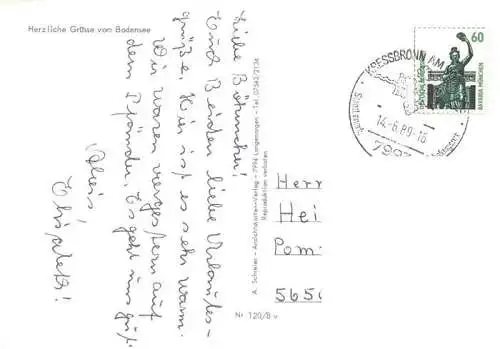 Herzliche Grüsse vom Bodensee
Euch Beiden liebe Urlaubs-
grüße. Hier ist es sehr warm.
Wir waren vorgestern auf
dem Pfänder. Es geht uns gut.
A. Schreier - Ansichtskarten-Verlag - 7994 Langenargen - Tel. 07543/2134
Reproduktion verboten
Nr. 120/8 v
KRESSBRONN AM
14.-6.89-16
799
60
BAVARIA MÜNCHEN
Herr
Hei
Pom
5650